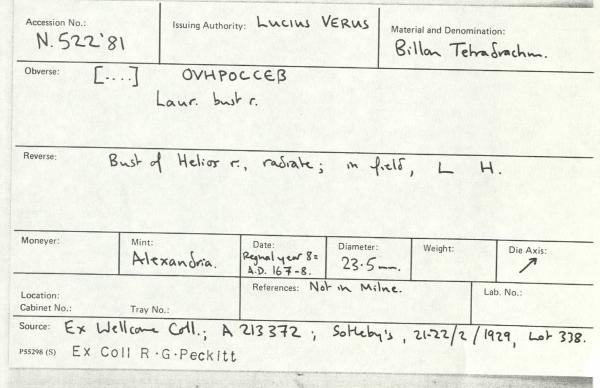 Accession No.: N.522'81
Issuing Authority: Lucius Verus
Material and Denomination: Billon Tetradrachm.
Obverse: [....] OVHPOCCEB
Laur. bust r.
Reverse: Bust of Helios r., radiate; in field, L H.
Moneyer:
Mint: Alexandria.
Date: Regnal year 8 = A.D. 167-8.
Diameter: 23.5mm.
Weight:
Die Axis: ↗
Location:
Cabinet No.: Tray No.:
References: Not in Milne.
Lab. No.:
Source: Ex Wellcome Coll.; A 213372; Sotheby's, 21-22/2/1929, Lot 338.
P55298 (S) Ex Coll R.G.Peckitt